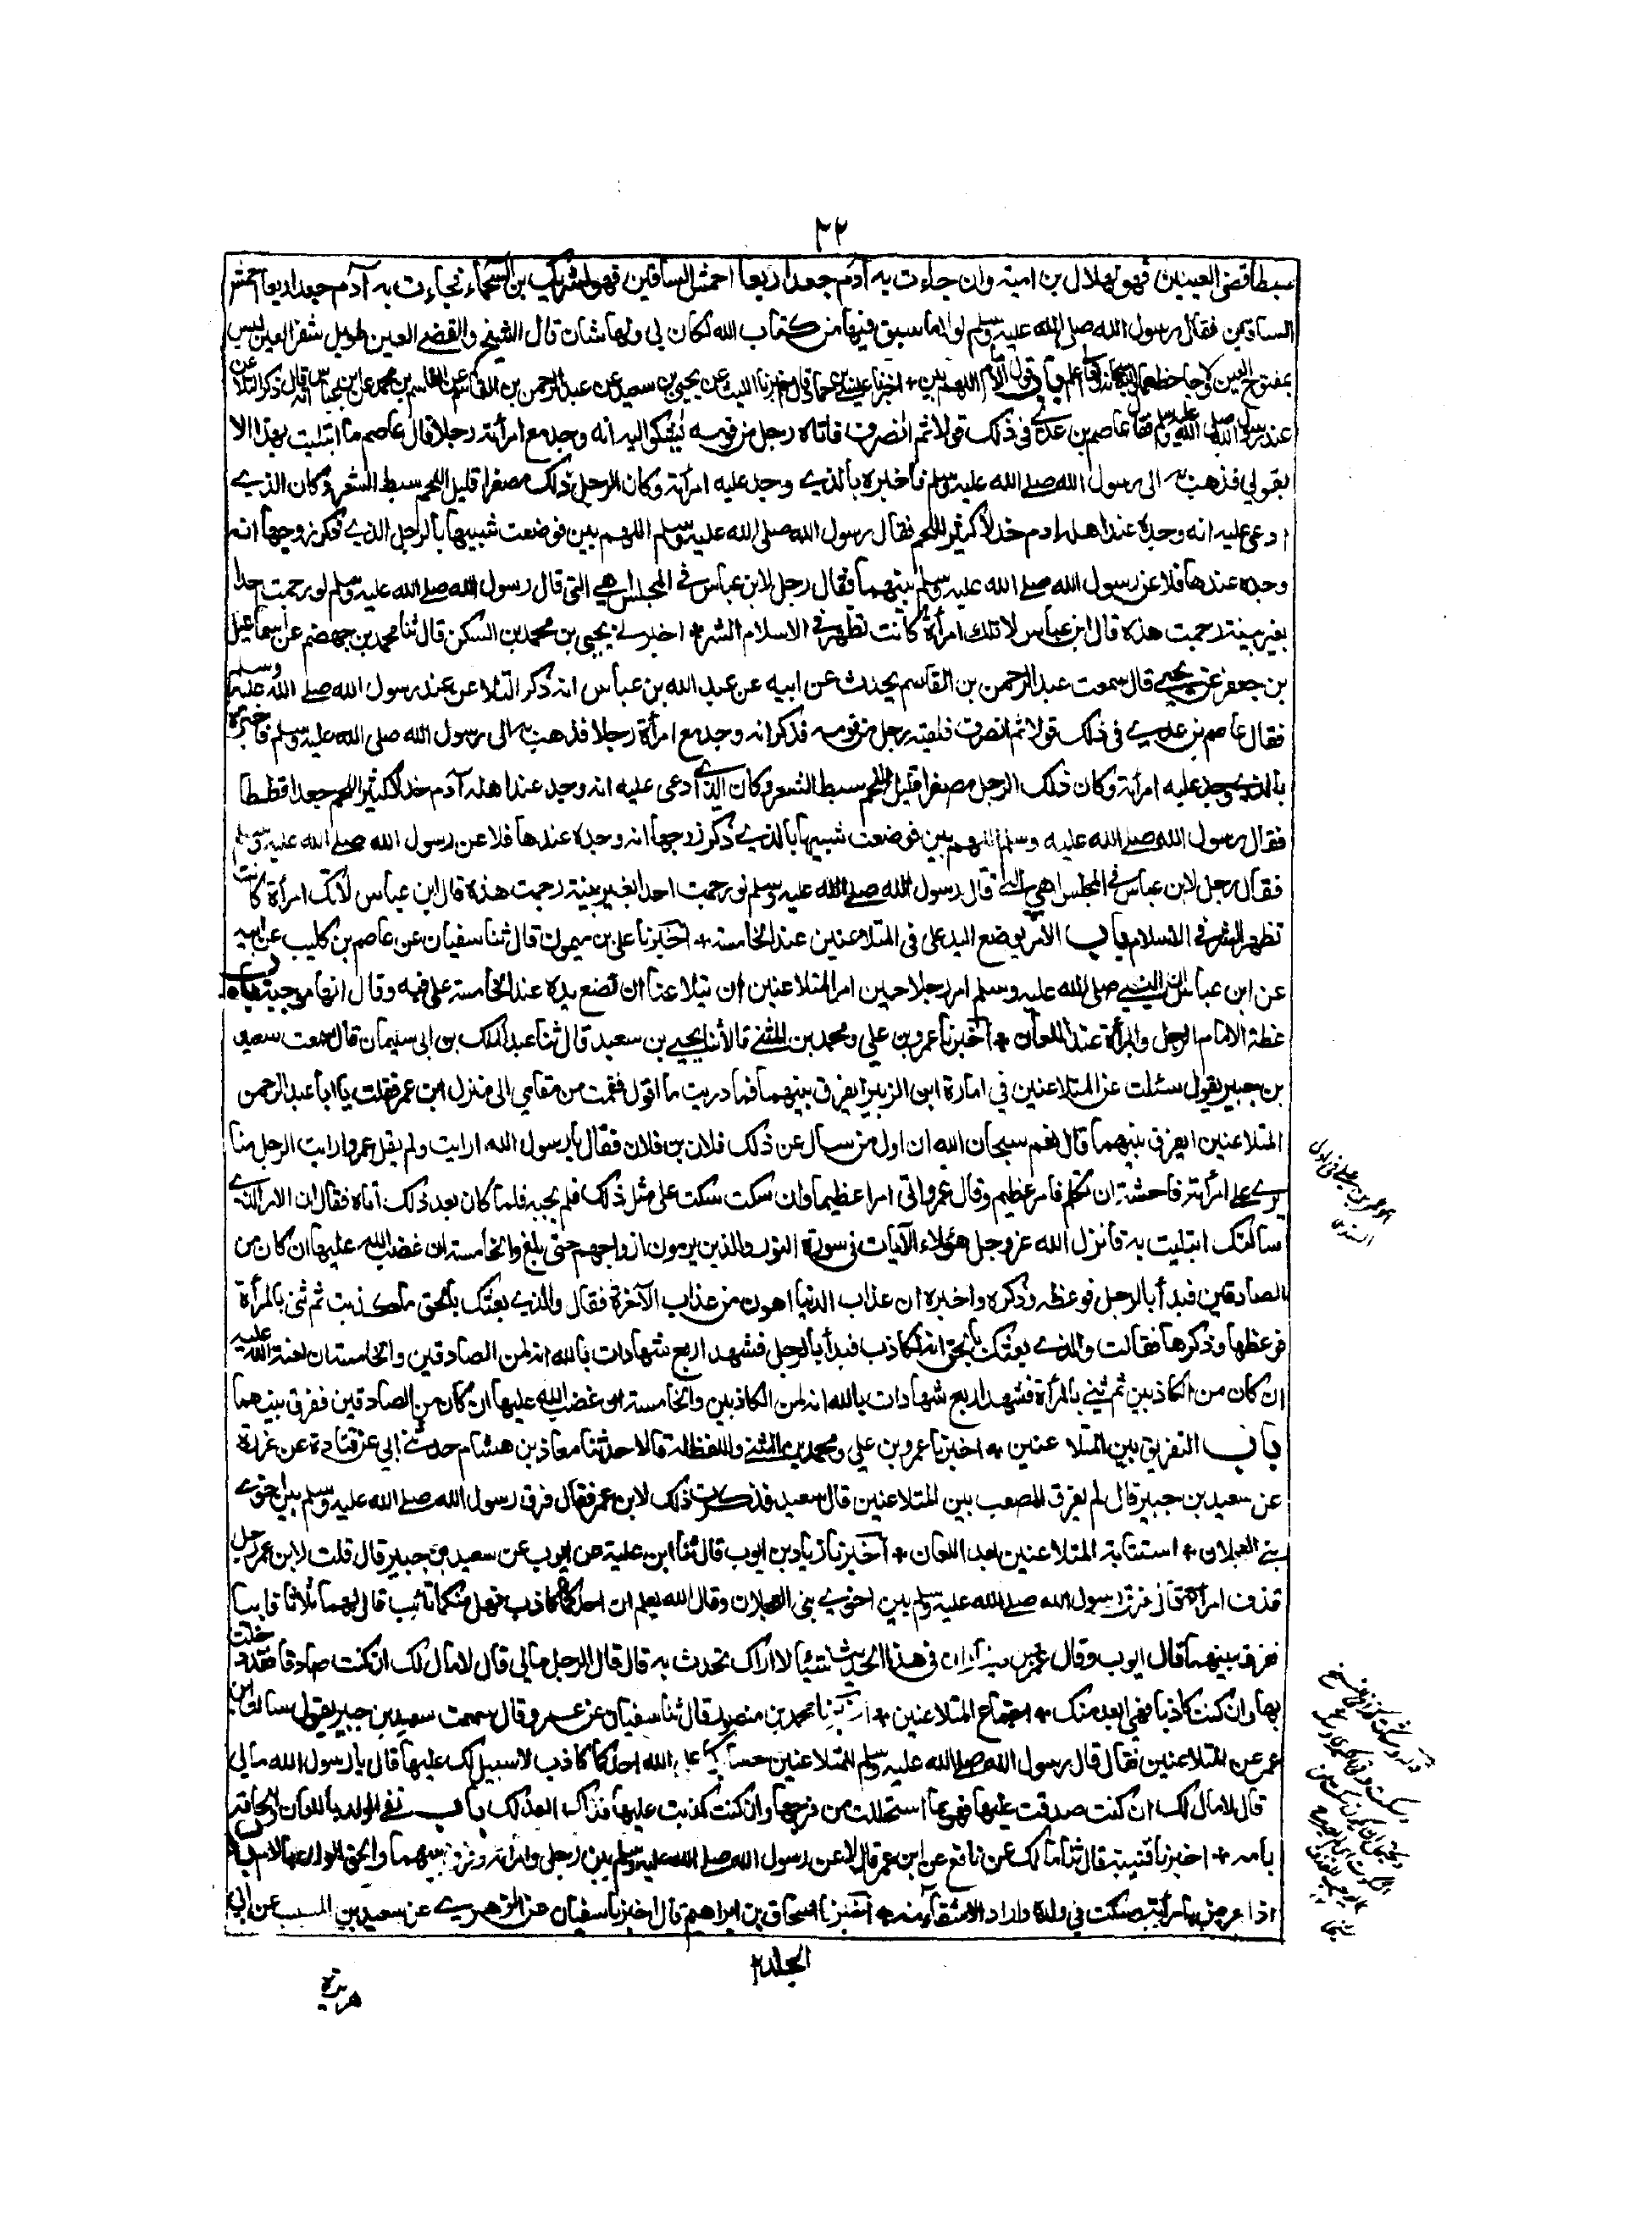 ٣٢
سبطا قضئ العينين فهو لهلال بن امية وان جاءت به آدم جعدا ربعا احمش الساقين فهو لشريك بن السحماء فجاءت به آدم جعدا ربعا احمش
الساقين فقال رسول الله صلى الله عليه وسلم لولا ما سبق فيها من كتاب الله لكان لي ولها شان قال الشيخ والقضئ العين طويل شفر العين ليس
بمفتوح العين ولا جاحظهما والله سبحانه وتعالى اعلم باب قول الامام اللهم بين + اخبرنا عيسى بن حماد قال اخبرنا الليث عن يحيى بن سعيد عن عبد الرحمن بن القاسم عن القاسم بن محمد عن ابن عباس انه قال ذكر التلاعن
عند رسول الله صلى الله عليه وسلم فقال عاصم بن عدي في ذلك قولا ثم انصرف فاتاه رجل من قومه يشكوا اليه انه وجد مع امرأته رجلا قال عاصم ما ابتليت بهذا الا
بقولي فذهب به الى رسول الله صلى الله عليه وسلم فاخبره بالذي وجد عليه امرأته وكان الرجل ذلك مصفرا قليل اللحم سبط الشعر وكان الذي
ادعى عليه انه وجده عند اهله ادم خدلا كثير اللحم فقال رسول الله صلى الله عليه وسلم اللهم بين فوضعت شبيها بالرجل الذي ذكر زوجها انه
وجده عندها فلاعن رسول الله صلى الله عليه وسلم بينهما فقال رجل لابن عباس في المجلس اهي التي قال رسول الله صلى الله عليه وسلم لو رجمت احدا
بغير بينة رجمت هذه قال ابن عباس لا تلك امرأة كانت تظهر في الاسلام الشر + اخبرني يحيى بن محمد بن السكن قال ثنا محمد بن جهضم عن اسماعيل
بن جعفر عن يحيى قال سمعت عبد الرحمن بن القاسم يحدث عن ابيه عن عبد الله بن عباس انه ذكر التلاعن عند رسول الله صلى الله عليه وسلم
فقال عاصم بن عدي في ذلك قولا ثم انصرف فلقيه رجل من قومه فذكر انه وجد مع امرأة رجلا فذهب به الى رسول الله صلى الله عليه وسلم فاخبره
بالذي وجد عليه امرأته وكان ذلك الرجل مصفرا قليل اللحم سبط الشعر وكان الذي ادعى عليه انه وجد عند اهله آدم خدلا كثير اللحم جعدا قططا
فقال رسول الله صلى الله عليه وسلم اللهم بين فوضعت شبيها بالذي ذكر زوجها انه وجده عندها فلاعن رسول الله صلى الله عليه وسلم
فقال رجل لابن عباس في المجلس اهي التي قال رسول الله صلى الله عليه وسلم لو رجمت احدا بغير بينة رجمت هذه قال ابن عباس لا تلك امرأة كانت
تظهر الشر في الاسلام باب الامر بوضع اليد على في المتلاعنين عند الخامسة + اخبرنا علي بن ميمون قال ثنا سفيان عن عاصم بن كليب عن ابيه
عن ابن عباس ان النبي صلى الله عليه وسلم امر رجلا حين امر المتلاعنين ان يتلاعنا ان يضع يده عند الخامسة على فيه وقال انها موجبة باب
عظة الامام الرجل والمرأة عند اللعان + اخبرنا عمرو بن علي ومحمد بن المثنى قالا ثنا يحيى بن سعيد قال ثنا عبد الملك بن ابي سليمان قال سمعت سعيد
بن جبير يقول سئلت عن المتلاعنين في امارة ابن الزبير ايفرق بينهما فما دريت ما اقول فقمت من مقامي الى منزل ابن عمر فقلت يا ابا عبد الرحمن
المتلاعنين ايفرق بينهما قال نعم سبحان الله ان اول من سال عن ذلك فلان بن فلان فقال يا رسول الله ارايت ولم يقل عمرو ارايت الرجل منا
يرى على امرأته فاحشة ان تكلم فامر عظيم وقال عمرو اتى امرا عظيما وان سكت سكت على مثل ذلك فلم يجبه فلما كان بعد ذلك اتاه فقال ان الامر الذي
سالتك ابتليت به فانزل الله عز وجل هؤلاء الآيات في سورة النور والذين يرمون ازواجهم حتى بلغ والخامسة ان غضب الله عليها ان كان من
الصادقين فبدأ بالرجل فوعظه وذكره واخبره ان عذاب الدنيا اهون من عذاب الآخرة فقال والذي بعثك بالحق ما كذبت ثم ثنى بالمرأة
فوعظها وذكرها فقالت والذي بعثك بالحق انه لكاذب فبدأ بالرجل فشهد اربع شهادات بالله انه لمن الصادقين والخامسة ان لعنة الله عليه
ان كان من الكاذبين ثم ثنى بالمرأة فشهد اربع شهادات بالله انه لمن الكاذبين والخامسة ان غضب الله عليها ان كان من الصادقين ففرق بينهما
باب التفريق بين المتلاعنين + اخبرنا عمرو بن علي ومحمد بن المثنى واللفظ له قالا حدثنا معاذ بن هشام حدثني ابي عن قتادة عن عزرة
عن سعيد بن جبير قال لم يفرق المصعب بين المتلاعنين قال سعيد فذكرت ذلك لابن عمر فقال فرق رسول الله صلى الله عليه وسلم بين اخوي
بني العجلان + استتابة المتلاعنين بعد اللعان + اخبرنا زياد بن ايوب قال ثنا ابن علية عن ايوب عن سعيد بن جبير قال قلت لابن عمر رجل
قذف امرأته قال فرق رسول الله صلى الله عليه وسلم بين اخوي بني العجلان وقال الله يعلم ان احدكما كاذب فهل منكما تائب قال لهما ثلاثا فابيا
ففرق بينهما قال ايوب وقال عمرو بن دينار ان في هذا الحديث شيئا لا اراك تحدث به قال قال الرجل مالي قال لا مال لك ان كنت صادقا فقد دخلت
بها وان كنت كاذبا فهي ابعد منك + اجتماع المتلاعنين + اخبرنا محمد بن منصور قال ثنا سفيان عن عمرو قال سمعت سعيد بن جبير يقول سالت ابن
عمر عن المتلاعنين فقال قال رسول الله صلى الله عليه وسلم للمتلاعنين حسابكما على الله احدكما كاذب لا سبيل لك عليها قال يا رسول الله مالي
قال لا مال لك ان كنت صدقت عليها فهو بما استحللت من فرجها وان كنت كذبت عليها فذاك ابعد لك باب نفي الولد باللعان والحاقه
بامه + اخبرنا قتيبة قال ثنا مالك عن نافع عن ابن عمر قال لاعن رسول الله صلى الله عليه وسلم بين رجل وامرأته وفرق بينهما والحق الولد بالام باب
اذا عرض بامرأته وسكت في ولده واراد الانتفاء منه + اخبرنا اسحاق بن ابراهيم قال اخبرنا سفيان عن الزهري عن سعيد بن المسيب عن ابي
الجلد ٢
هريرة